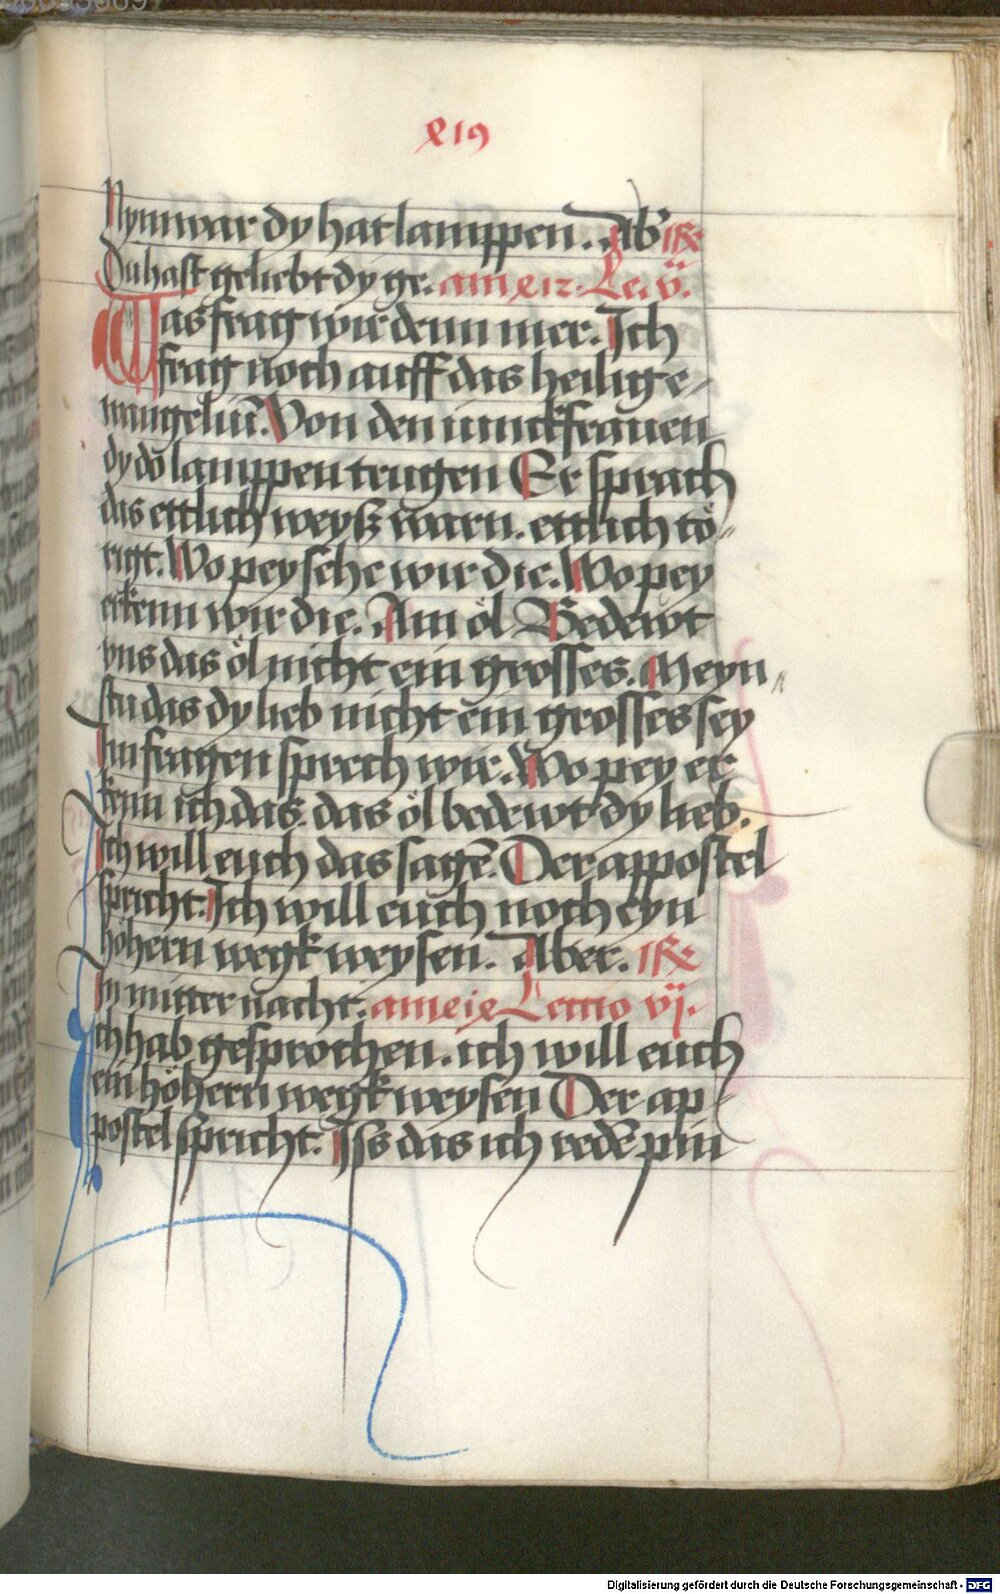 419
Nym war dy hat lamppen. Ab̕ iɼ̃e
Du hast geliebt dy ge. am 412. Le. v̈.
Was frag wir denn mer. Ich
frag noch auff das heilig e-
wangeliū. Von den iunckfrauen
dy do lamppen trugen Er sprach
das ettlich weysz warn. ettlich tö-
rigt. Wo pey sehe wir die. Wo pey
erkenn wir die. Am öl Bedewt
vns das öl nicht ein grosses. Meyn-
stu das dy lieb nicht ein grosses sey
Im fragen sprech wir. Wo pey er
kenn ich das. das öl bedewt dy lieb.
Ich will euch das sagē. Der appostel
spricht. Ich will euch noch eyn
höhern wegk weysen. Aber. iɼ̃e
In mitter nacht. am Lectio vj.
Ich hab gesprochen. ich will euch
ein höhern wegk weysen Der ap-
postel spricht. Iss das ich redē pin
Digitalisierung gefördert durch die Deutsche Forschungsgemeinschaft - DFG